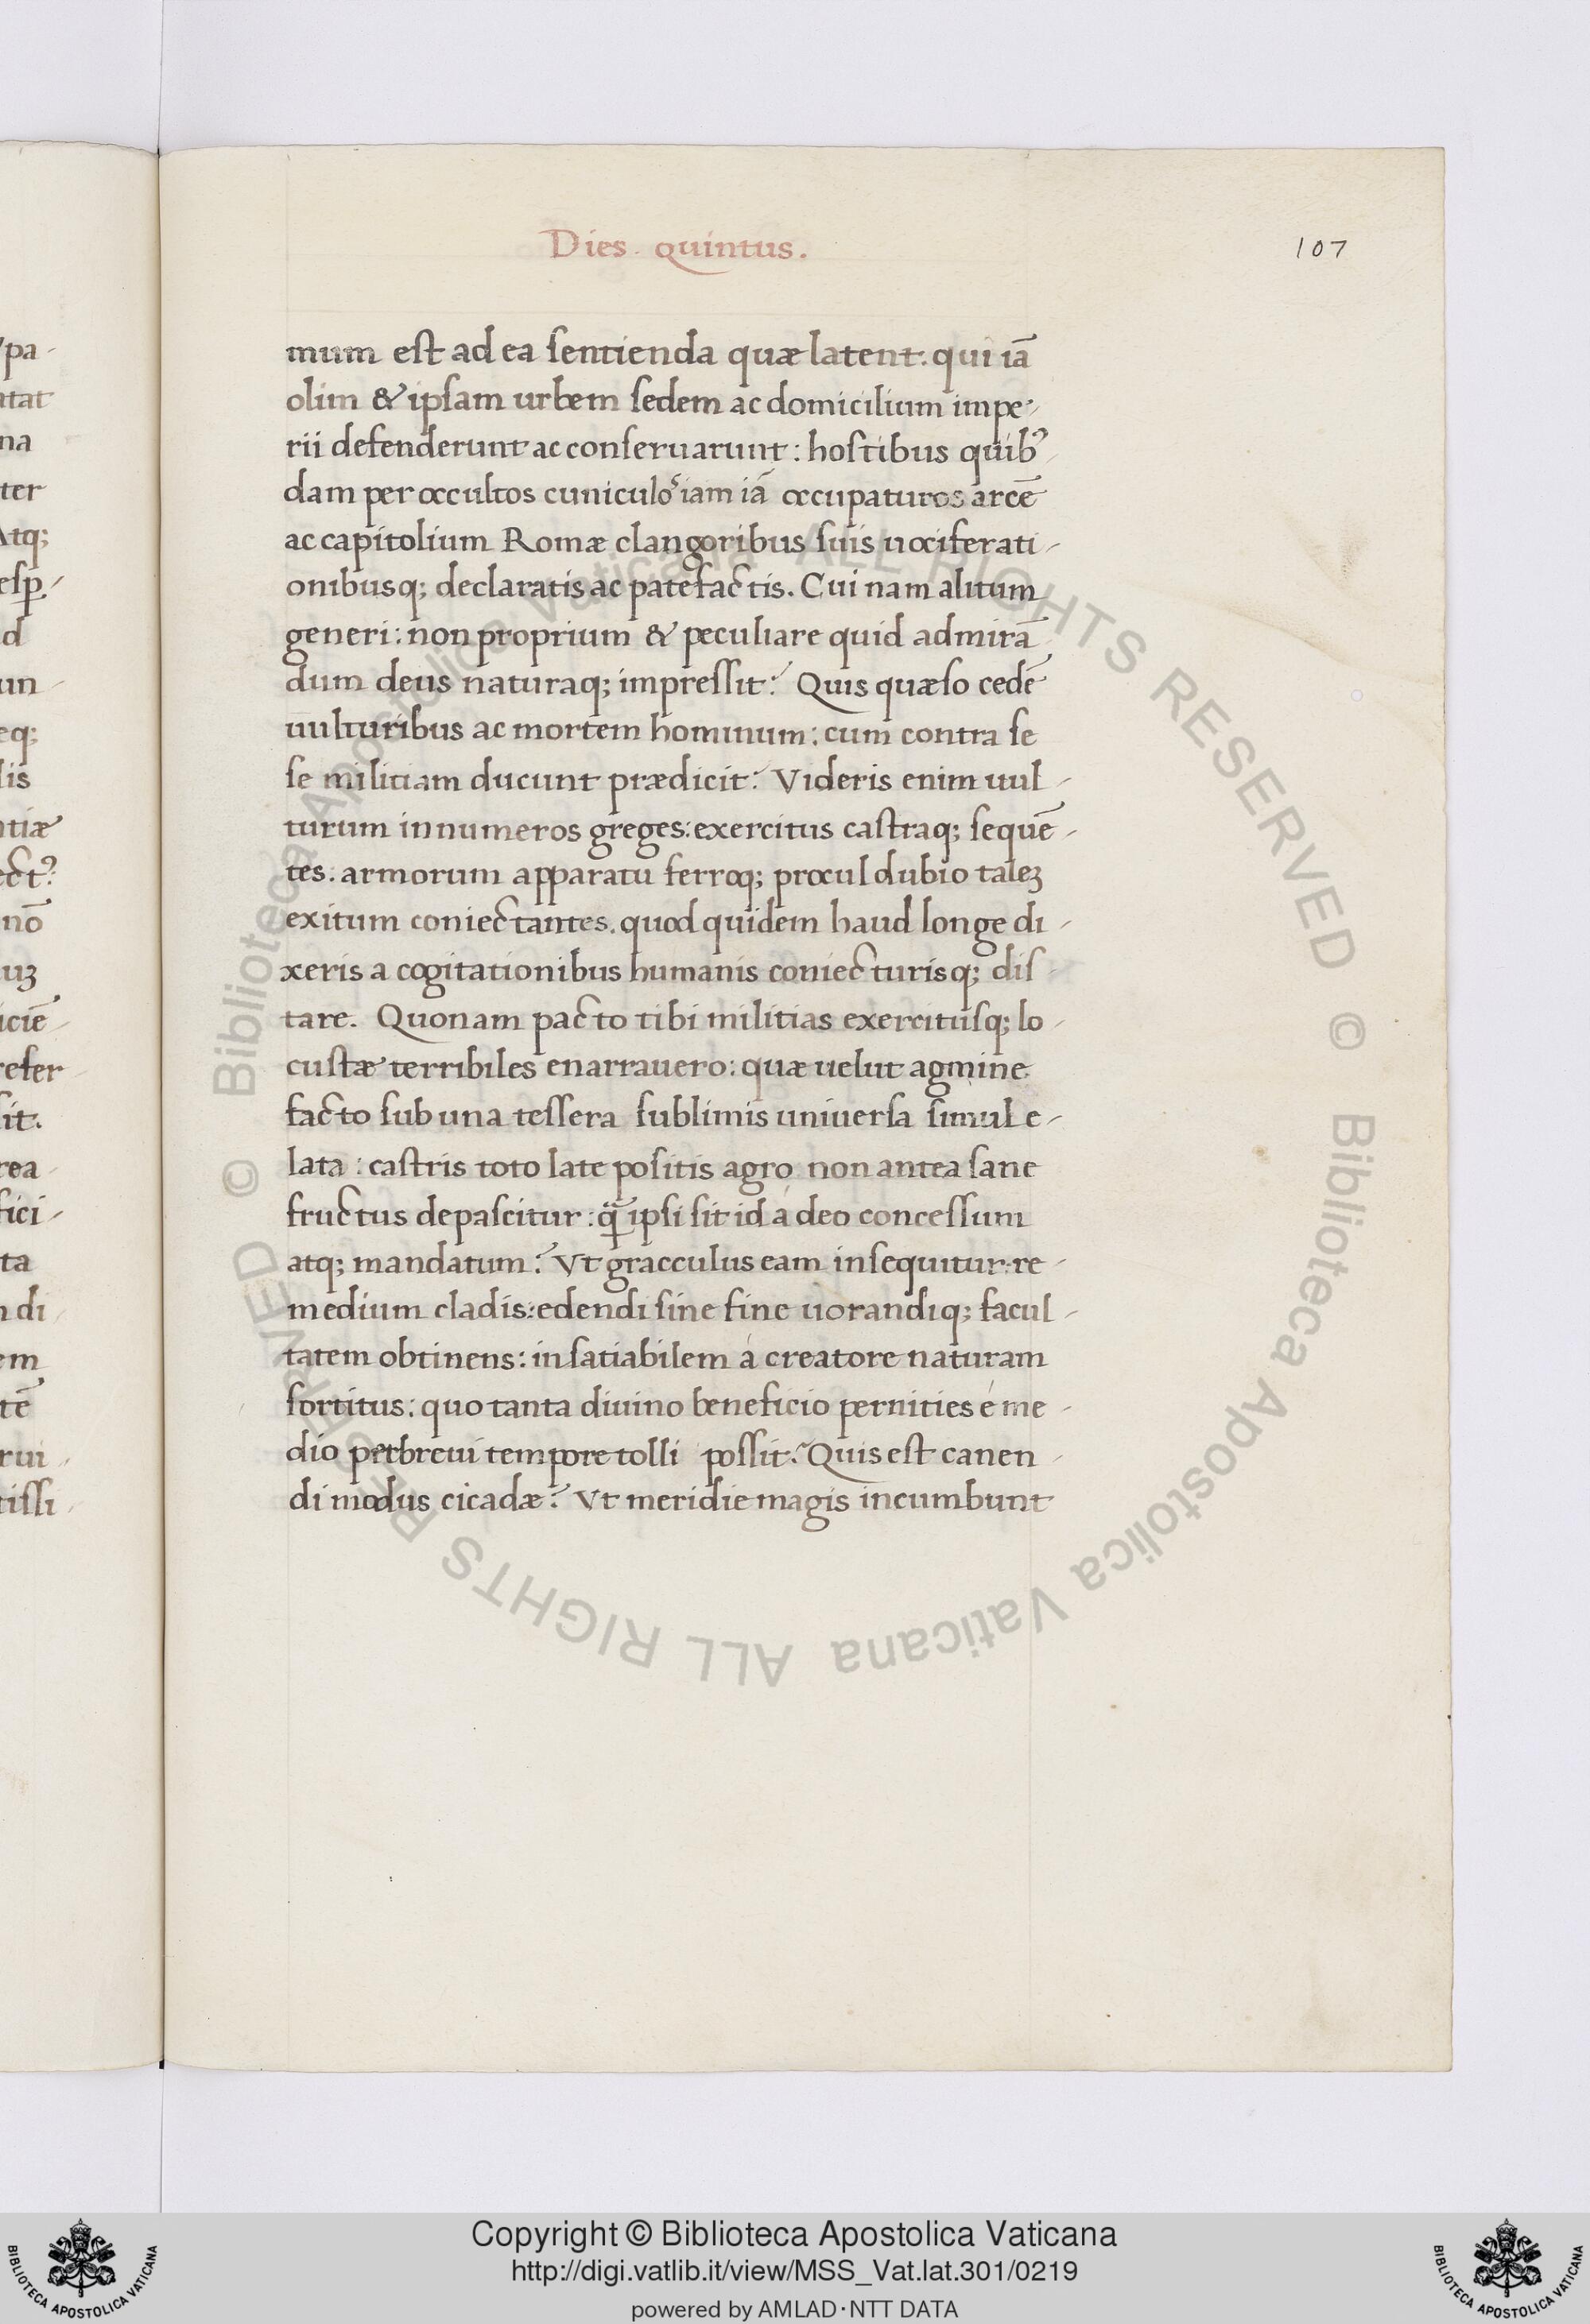 Dies quintus.
107
mum est ad ea sentienda quæ latent. qui iā
olim & ipsam urbem sedem ac domicilium impe-
rii defenderunt ac conseruarunt: hostibus quibꝰ-
dam per occultos cuniculoˢ iam iā occupaturos arcē
ac capitolium Romæ clangoribus suis uociferati-
onibusq; declaratis ac patefactis. Cui nam alitum
generi: non proprium & peculiare quid admirā-
dum deus naturaq; impressit? Quis quæso cedē
uulturibus ac mortem hominum: cum contra se
se militiam ducunt prædicit? Videris enim uul-
turum innumeros greges: exercitus castraq; sequē-
tes: armorum apparatu ferroq; procul dubio taleꝫ
exitum coniectantes. quod quidem haud longe di-
xeris a cogitationibus humanis coniecturisq; dis-
tare. Quonam pacto tibi militias exercitusq; lo-
custæ terribiles enarrauero: quæ uelut agmine
facto sub una tessera sublimis uniuersa simul e-
lata: castris toto late positis agro non antea sane
fructus depascitur: q̄ ipsi sit id á deo concessum
atq; mandatum? Vt gracculus eam insequitur: re-
medium cladis: edendi sine fine uorandiq; facul-
tatem obtinens: insatiabilem á creatore naturam
sortitus: quo tanta diuino beneficio pernities é me-
dio perbreui tempore tolli possit? Quis est canen-
di modus cicadæ? Vt meridie magis incumbunt
pa-
tat
na
ter
Atq;
esp̱-
d
un-
eq;
lis
ntiæ
ect?
nō
uꝫ
iciē-
refer-
sit.
rea-
fici-
ta
n di-
em
tē
rui-
tissi-
© Biblioteca Apostolica Vaticana ALL RIGHTS RESERVED © Biblioteca Apostolica Vaticana ALL RIGHTS RESERVED
Copyright © Biblioteca Apostolica Vaticana
http://digi.vatlib.it/view/MSS_Vat.lat.301/0219
powered by AMLAD·NTT DATA
BIBLIOTECA APOSTOLICA VATICANA
BIBLIOTECA APOSTOLICA VATICANA